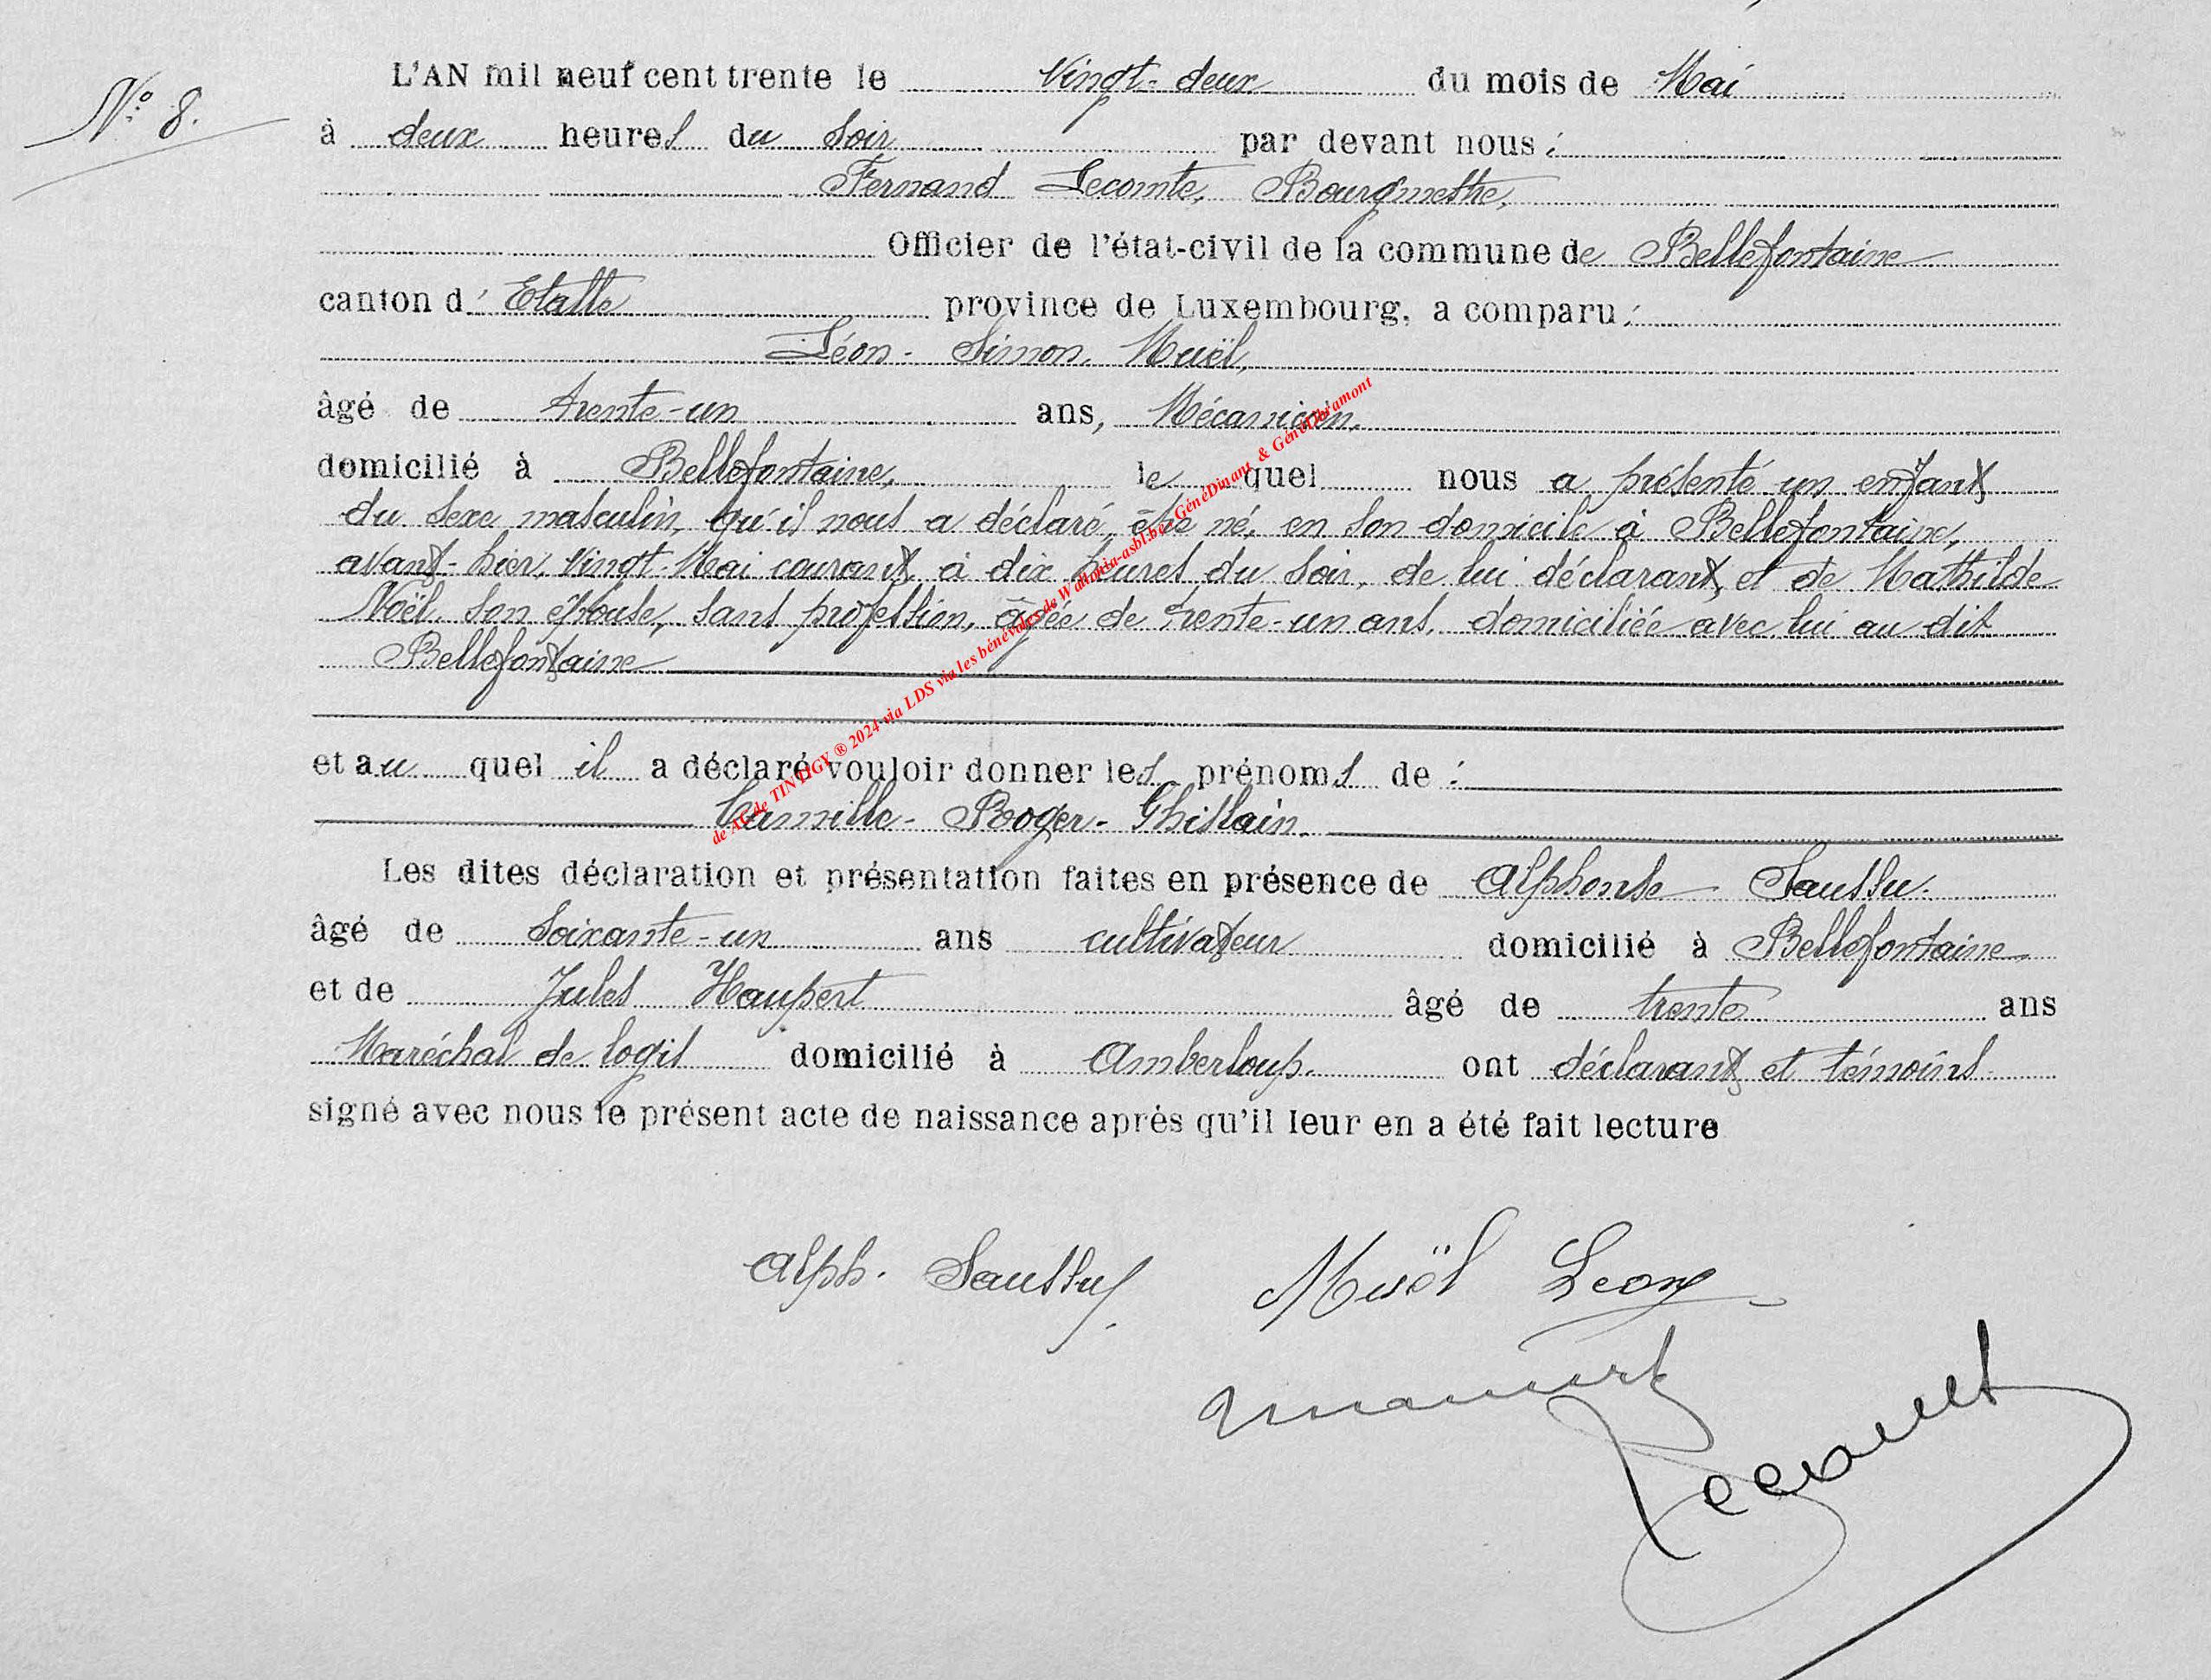 N° 8.
L'AN mil neuf cent trente le Vingt-deux du mois de Mai
à deux heures du Soir par devant nous :
Fernand Lecomte, Bourgmestre,
Officier de l'état-civil de la commune de Bellefontaine
canton d' Etalle province de Luxembourg, a comparu :
Léon - Simon, Muël,
âgé de trente-un ans, Mécanicien,
domicilié à Bellefontaine, le quel nous a présenté un enfant
du sexe masculin, qu'il nous a déclaré être né, en son domicile à Bellefontaine,
avant-hier, Vingt-Mai courant, à dix heures du Soir, de lui déclarant, et de Mathilde
Noël, son épouse, sans profession, âgée de trente-un ans, domiciliée avec lui au dit
Bellefontaine
et au quel il a déclaré vouloir donner les prénoms de :
Camille - Roger - Ghislain.
Les dites déclaration et présentation faites en présence de Alphonse Saussu.
âgé de Soixante-un ans cultivateur domicilié à Bellefontaine
et de Jules Haupert âgé de trente ans
Maréchal de logis domicilié à Amberloup. ont déclarant et témoins
signé avec nous le présent acte de naissance après qu'il leur en a été fait lecture
Alph. Saussu. Muël Leon
de AC de TINTIGY ® 2024 via LDS via les bénévoles de Wallonia-asbl.be, GénéDinant & GénéLibramont